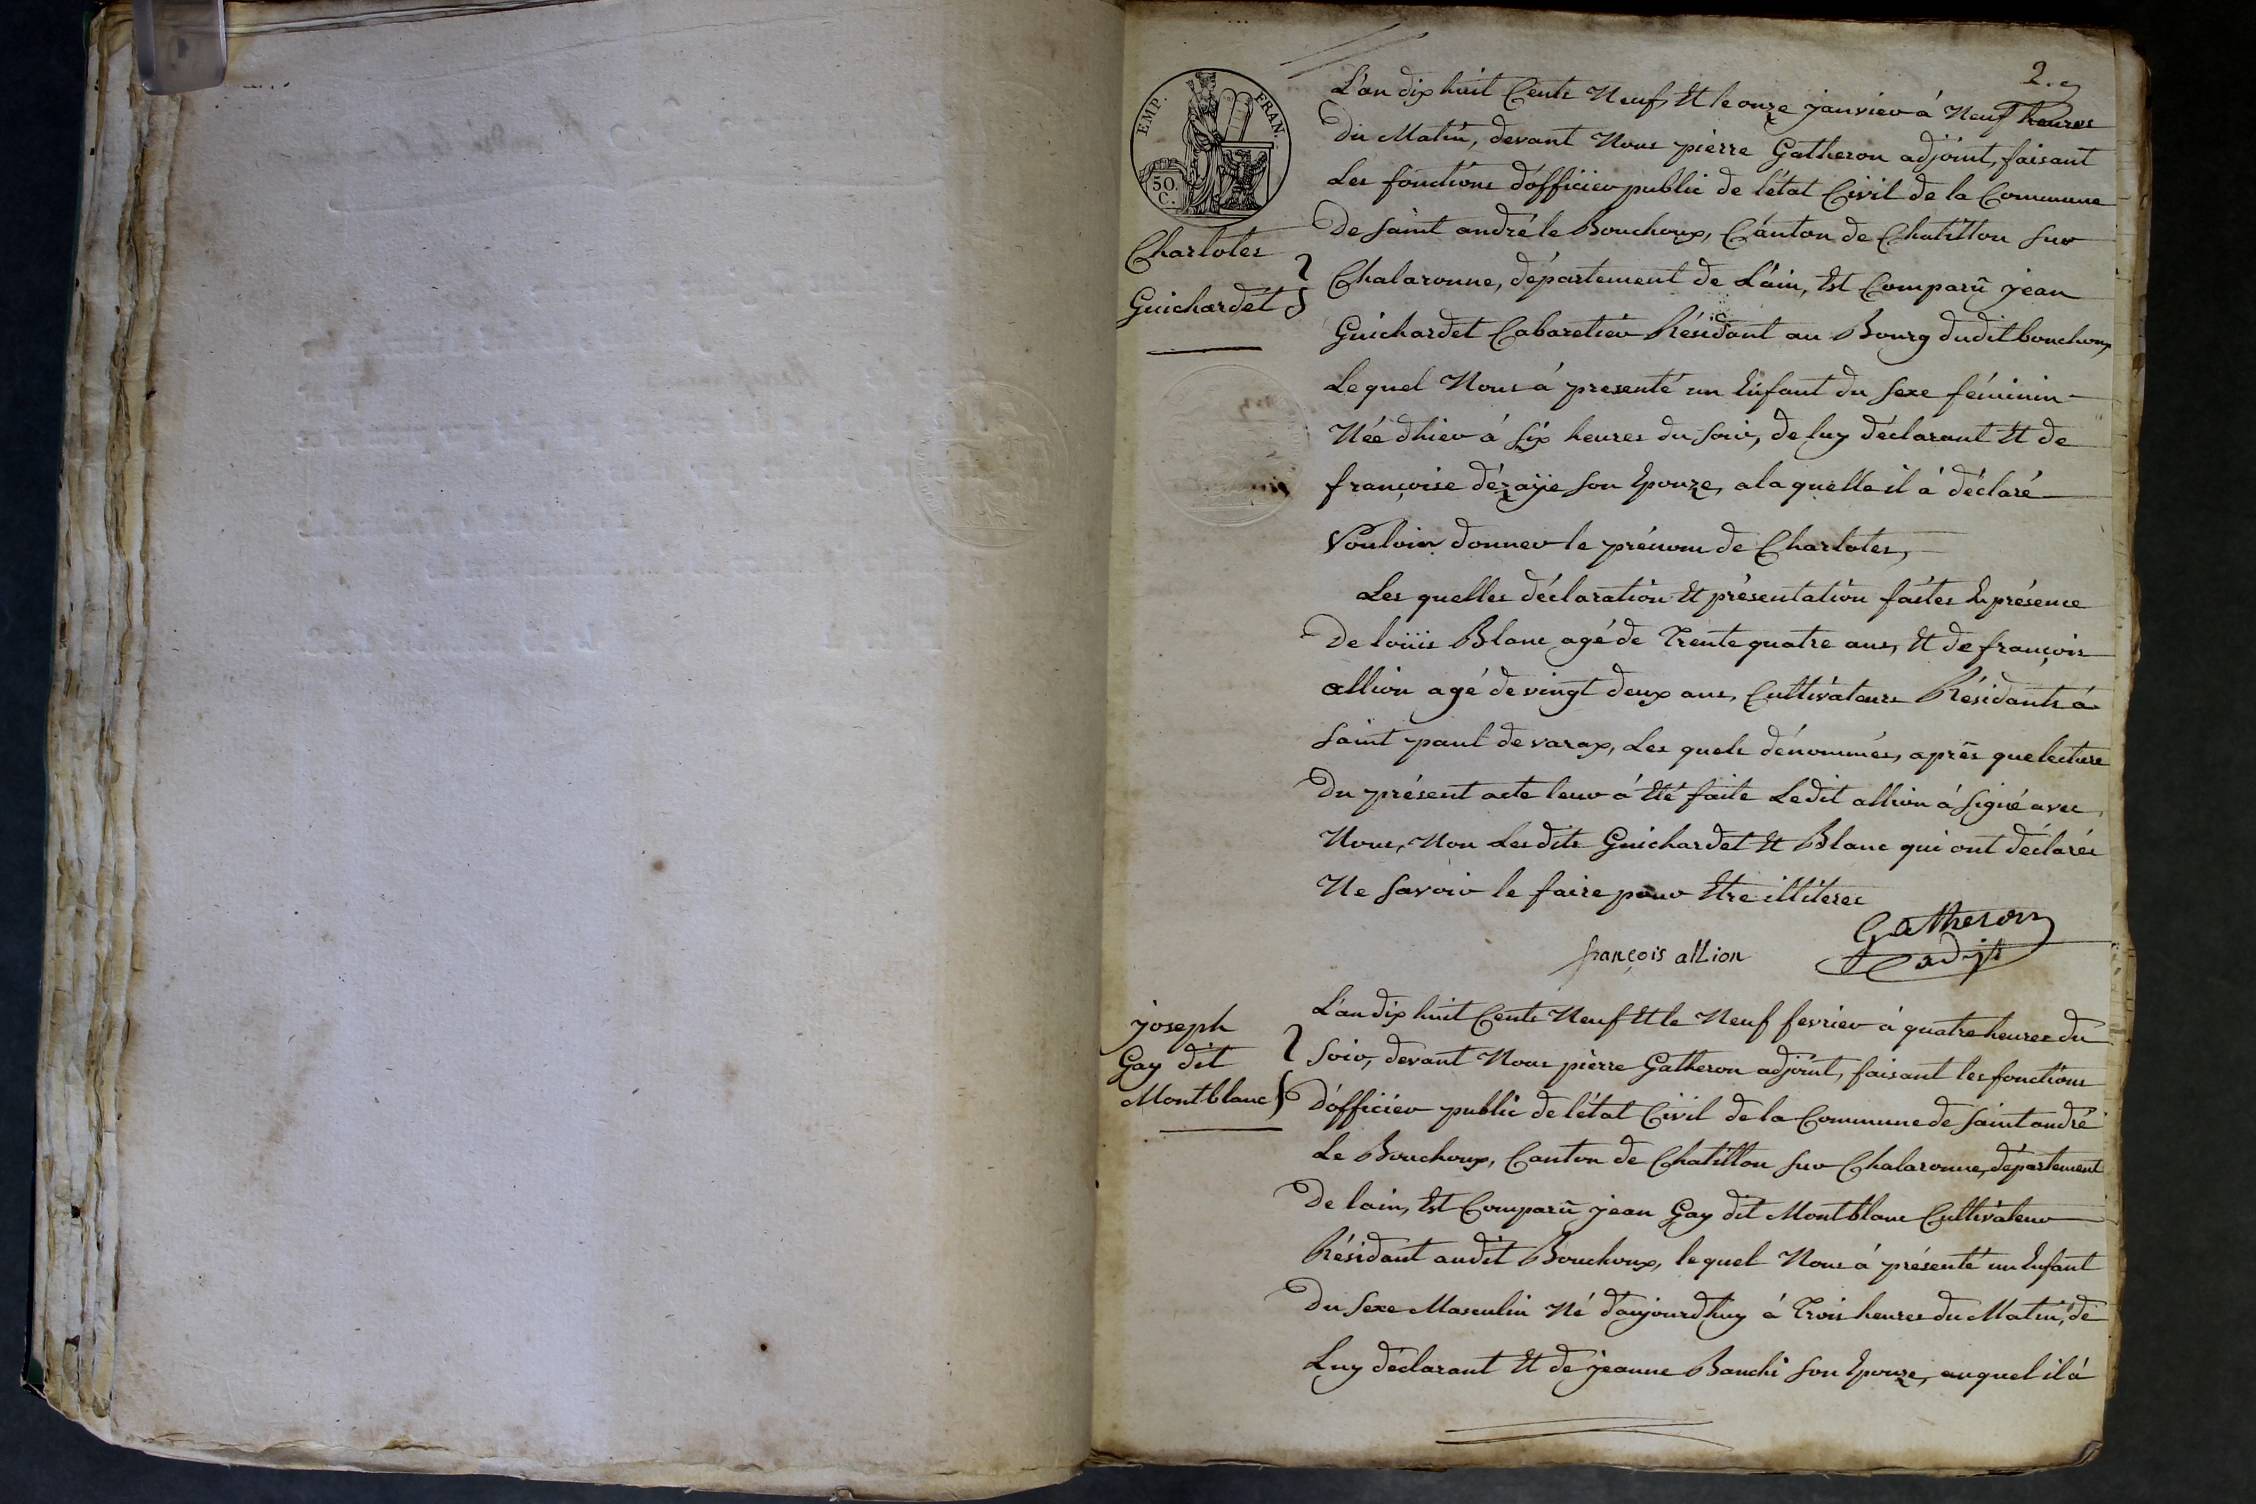 2.
EMP. FRAN.
50.
C.
Charlotes
Guichardet
L'an dix huit Cents Neuf, Et le onze janvier á Neuf heures
du Matin, devant Nous pierre Gatheron adjoint, faisant
Les fonctions d'officier public de l'état Civil de la Commune
De saint andré le Bouchoux, Canton de Chatillon sur
Chalaronne, département de L'ain, Est Comparu jean
Guichardet Cabaretier Résidant au Bourg dudit bouchoux
Lequel Nous á presenté un Enfant du sexe féminin
Née dhier á six heures du soir, de luy déclarant Et de
françoise dézaÿe son Epouze, a la quelle il á déclaré
Vouloir donner le prénom de Charlotes,
Les quelles déclaration Et présentation faites En présence
De loüis Blanc agé de Trente quatre ans, Et de françois
allion agé de vingt deux ans, Cultivateurs Résidants á
saint paul de varax, Les quels dénommés, aprés que lecture
Du présent acte leur á Eté faite Ledit allion á signé avec
Nous, Non Lesdits Guichardet Et Blanc qui ont déclarés
Ne savoir le faire pour Etre illiteres
françois allion
Gatheron
adjt
joseph
Gay dit
Montblanc
L'an dix huit Cents Neuf Et le Neuf fevrier á quatre heures du
soir, devant Nous pierre Gatheron adjoint, faisant les fonctions
D'officier public de l'état Civil de la Commune de saint andré
Le Bouchoux, Canton de Chatillon sur Chalaronne, département
De lain, Est Comparu jean Gay dit Montblanc Cultivateur
Résidant audit Bouchoux, lequel Nous á présenté un Enfant
Du sexe Masculin Né d'aujourdhuy á Trois heures du Matin, de
Luy déclarant Et de jeanne Banchi son Epouze, auquel il á